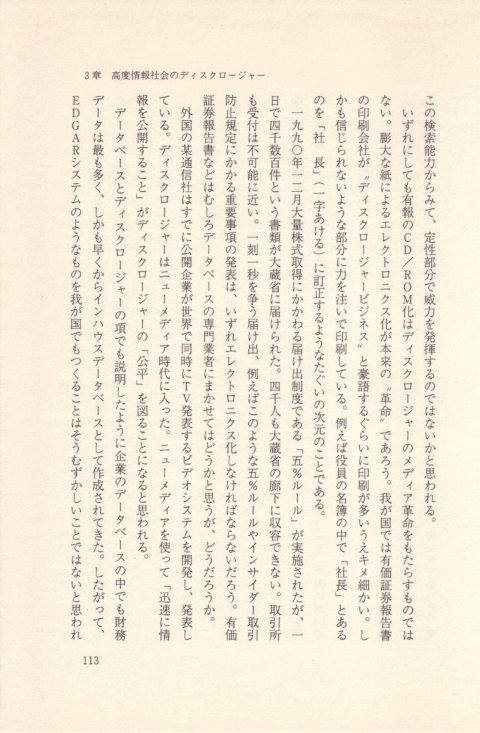 3章 高度情報社会のディスクロージャー
この検索能力からみて、定性部分で威力を発揮するのではないかと思われる。
いずれにしても有報のCD／ROM化はディスクロージャーのメディア革命をもたらすものでは
ない。膨大な紙によるエレクトロニクス化が本来の〝革命〟であろう。我が国では有価証券報告書
の印刷会社が〝ディスクロージャービジネス〟と豪語するぐらいに印刷が多いうえキメ細かい。し
かも信じられないような部分に力を注いで印刷している。例えば役員の名簿の中で「社長」とある
のを「社　長」（一字あける）に訂正するようなたぐいの次元のことである。
一九九〇年一二月大量株式取得にかかわる届け出制度である「五％ルール」が実施されたが、一
日で四千数百件という書類が大蔵省に届けられた。四千人も大蔵省の廊下に収容できない。取引所
も受付は不可能に近い。一刻一秒を争う届け出、例えばこのような五％ルールやインサイダー取引
防止規定にかかる重要事項の発表は、いずれエレクトロニクス化しなければならないだろう。有価
証券報告書などはむしろデータベースの専門業者にまかせてはどうかと思うが、どうだろうか。
外国の某通信社はすでに公開企業が世界で同時にTV発表するビデオシステムを開発し、発表し
ている。ディスクロージャーはニューメディア時代に入った。ニューメディアを使って「迅速に情
報を公開すること」がディスクロージャーの「公平」を図ることになると思われる。
データベースとディスクロージャーの項でも説明したように企業のデータベースの中でも財務
データは最も多く、しかも早くからインハウスデータベースとして作成されてきた。したがって、
EDGARシステムのようなものを我が国でもつくることはそうむずかしいことではないと思われ
113